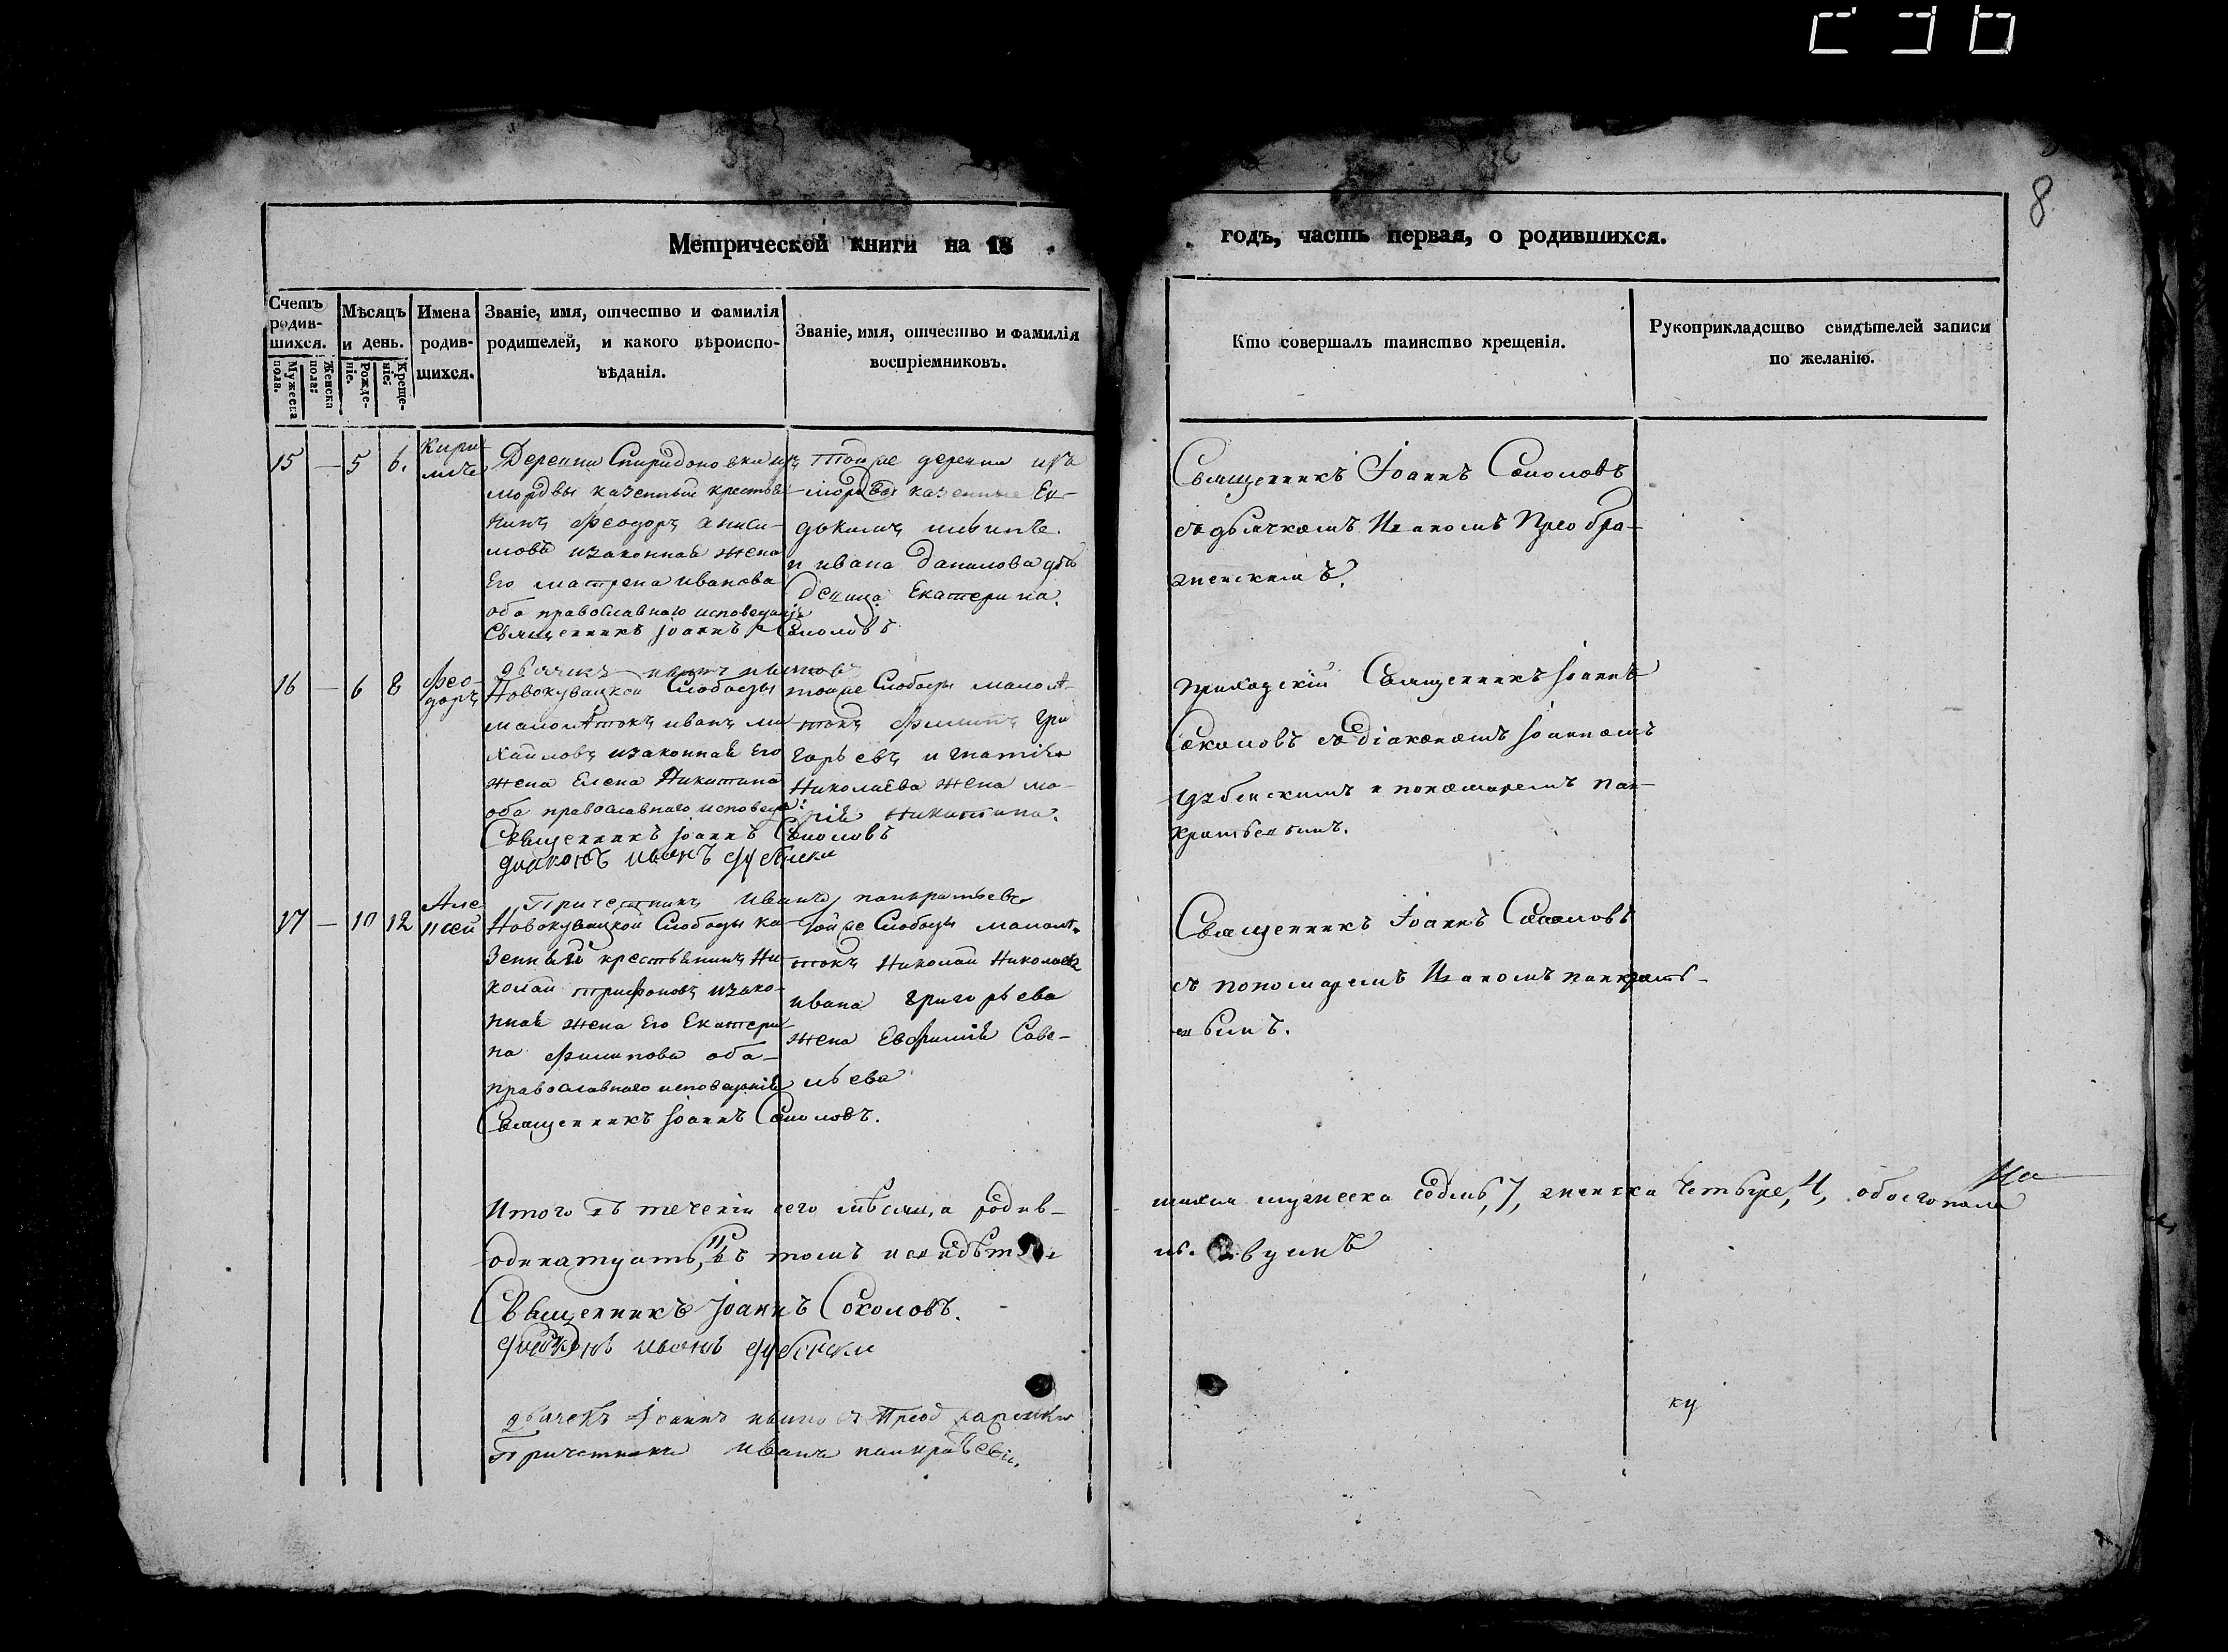 8
Метрической книги на 18
годъ, часть первая, о родившихся.
Счетъ родив-шихся.
Мужеска пола.
Женска пола.
Мѣсяцъ и день.
Рожде-ніе.
Креще-ніе.
Имена родив-шихся.
Званіе, имя, отчество и фамилія
родителей, и какого вѣроиспо-
вѣданія.
Званіе, имя, отчество и фамилія
воспріемниковъ.
Кто совершалъ таинство крещенія.
Рукоприкладство свидѣтелей записи
по желанію.
15 — 5 6.
Деревни Спиридоновки изъ
мордвы казенный крестья-
нинъ Феодоръ аниси-
мовъ изаконная жена
Его матрена иванова
оба православнаго исповеданія
Священникъ Іоаннъ Соколовъ
тойже деревни изъ
мордвы казенные Ев-
докимъ
и ивана данилова
Екатерина.
Священникъ Іоаннъ Соколовъ
съ дьячкомъ Иваномъ Преобра-
женскимъ.
16 — 6 8 Фео-
доръ
Новокувацкой Слободы
малолѣтокъ иванъ ми
хайловъ изаконная Его
жена Елена Никитина
оба православнаго исповеда:
Священникъ Іоаннъ Соколовъ
диаконъ иванъ
тойже Слободы малолѣ-
токъ Филипъ Гри
горьевъ и
Николаева жена ма-
рія Никитина.
Приходскій Священникъ Іоаннъ
Соколовъ съ діакономъ Іоанномъ
и пономаремъ Пан-
кратьевымъ.
17 — 10 12 Але
ксей
Причетникъ Иванъ панкратьевъ
Новокувацкой Слободы ка-
зенный крестьянинъ Ни-
колай трифоновъ изако-
нная жена Его Екатери-
на Филипова оба-
православнаго исповеданія
Священникъ Іоаннъ Соколовъ.
Тойже Слободы малолѣ-
токъ Николай Николаевъ
ивана григорьева
жена Евфимія Саве-
льева
Священникъ Іоаннъ Соколовъ
съ пономаремъ Иваномъ панкрать-
евымъ.
Итого въ теченіи сего мѣсяца родив-
шихся мужеска седмь, 7, женска четыре, 4, обоего пола
одинатцать, 11, въ томъ
Священникъ Іоаннъ Соколовъ.
иванъ
дьячекъ Іоаннъ
Причетникъ Иванъ панкратьевъ.
ку